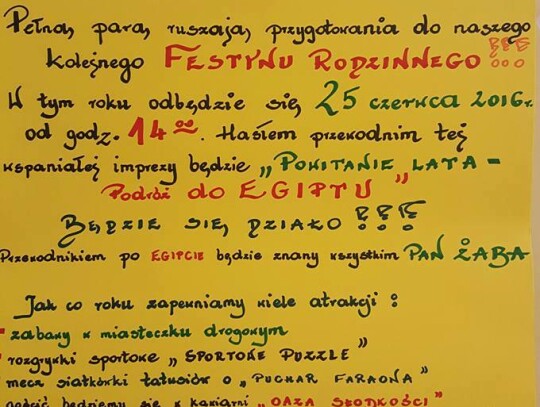 Pełną parą ruszają przygotowania do naszego
kolejnego FESTYNU RODZINNEGO !!!
W tym roku odbędzie się 25 czerwca 2016r.
od godz. 14⁰⁰. Hasłem przewodnim tej
wspaniałej imprezy będzie „POWITANIE LATA -
Podróż do EGIPTU”
BĘDZIE SIĘ DZIAŁO !!!
Przewodnikiem po EGIPCIE będzie znany wszystkim PAN ŻABA
Jak co roku zapewniamy wiele atrakcji :
- zabawy w miasteczku drogowym
- rozgrywki sportowe „SPORTOWE PUZZLE”
mecz siatkówki tatusiów o „PUCHAR FARAONA”
gościć będziemy się w kawiarni „OAZA SŁODKOŚCI”